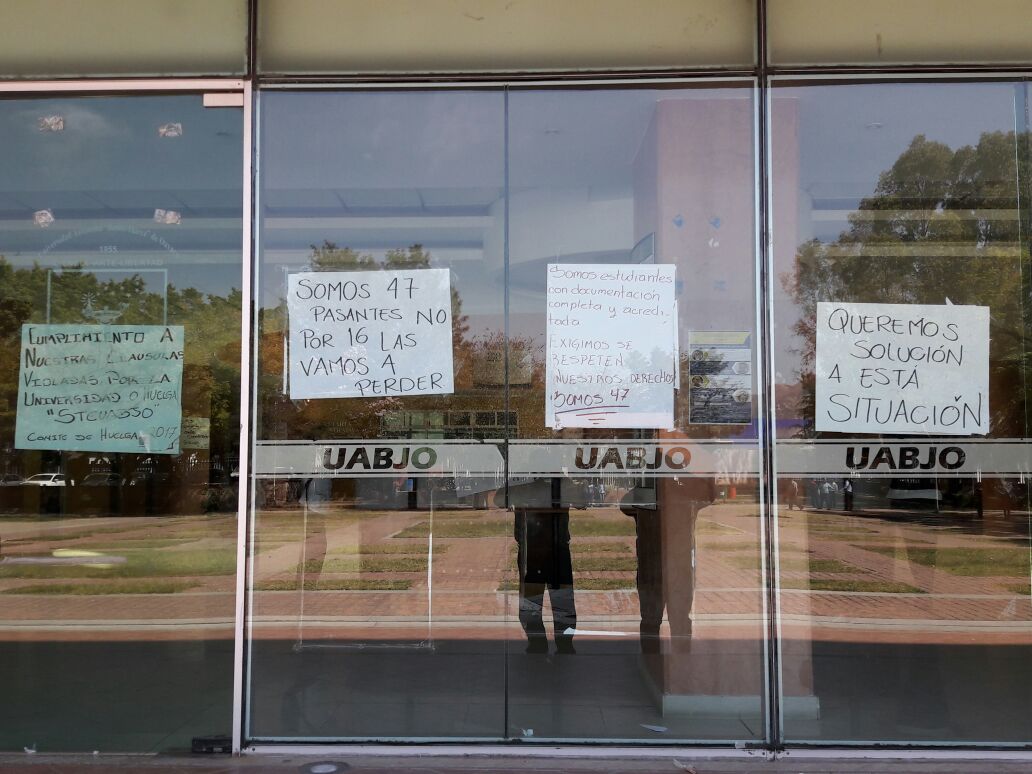 1955
CUMPLIMIENTO A
NUESTRAS CLAUSOLAS
VIOLADAS POR LA
UNIVERSIDAD O HUELGA
"STEUABJO"
COMITÉ DE HUELGA 2017
SOMOS 47
PASANTES NO
POR 16 LAS
VAMOS A
PERDER
Somos estudiantes
con documentación
completa y acredi-
tada
EXIGIMOS SE
RESPETEN
NUESTROS DERECHOS
SOMOS 47
QUEREMOS
SOLUCIÓN
A ESTÁ
SITUACIÓN
UABJO
UABJO
UABJO